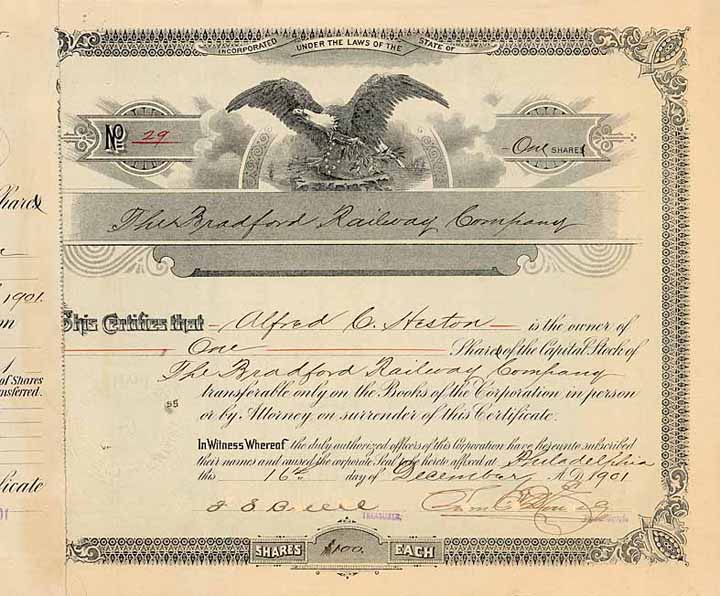 INCORPORATED UNDER THE LAWS OF THE STATE OF
No 29
One SHARES
The Bradford Railway Company
This Certifies that Alfred C. Heston is the owner of
One Shares of the Capital Stock of
The Bradford Railway Company
transferable only on the Books of the Corporation in person
or by Attorney on surrender of this Certificate.
In Witness Whereof the duly authorized officers of this Corporation have hereunto subscribed
their names and caused the corporate Seal to be hereto affixed at Philadelphia
this 16th day of December A.D. 1901
TREASURER.
SHARES $100. EACH
Shares
1901
1
of Shares
nsferred.
ficate
01